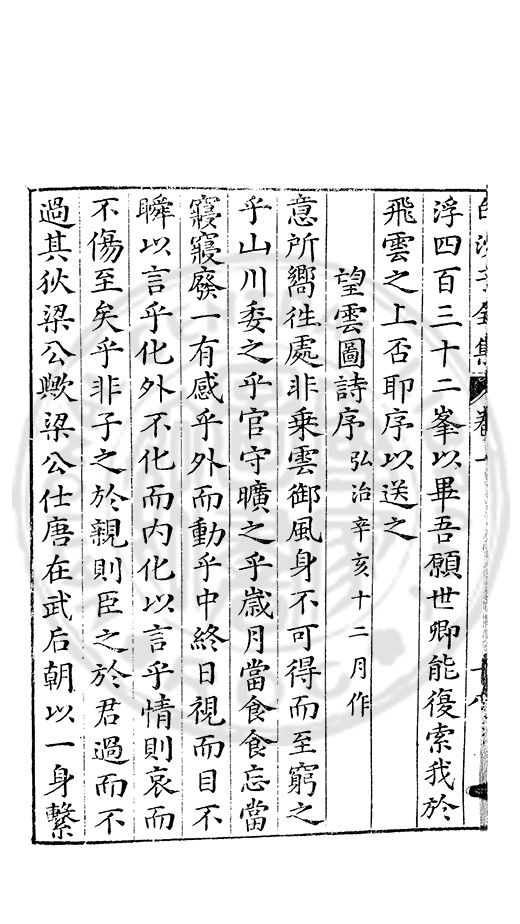 浮四百三十二峯以畢吾願世卿能復索我於
飛雲之上否耶序以送之
望雲圖詩序 弘治辛亥十二月作
意所嚮徃處非乗雲御風身不可得而至窮之
乎山川委之乎官守曠之乎歳月當食食忘當
寢寢廢一有感乎外而動乎中終日視而目不
瞬以言乎化外不化而内化以言乎情則哀而
不傷至矣乎非子之於親則臣之於君過而不
過其狄梁公歟梁公仕唐在武后朝以一身繫